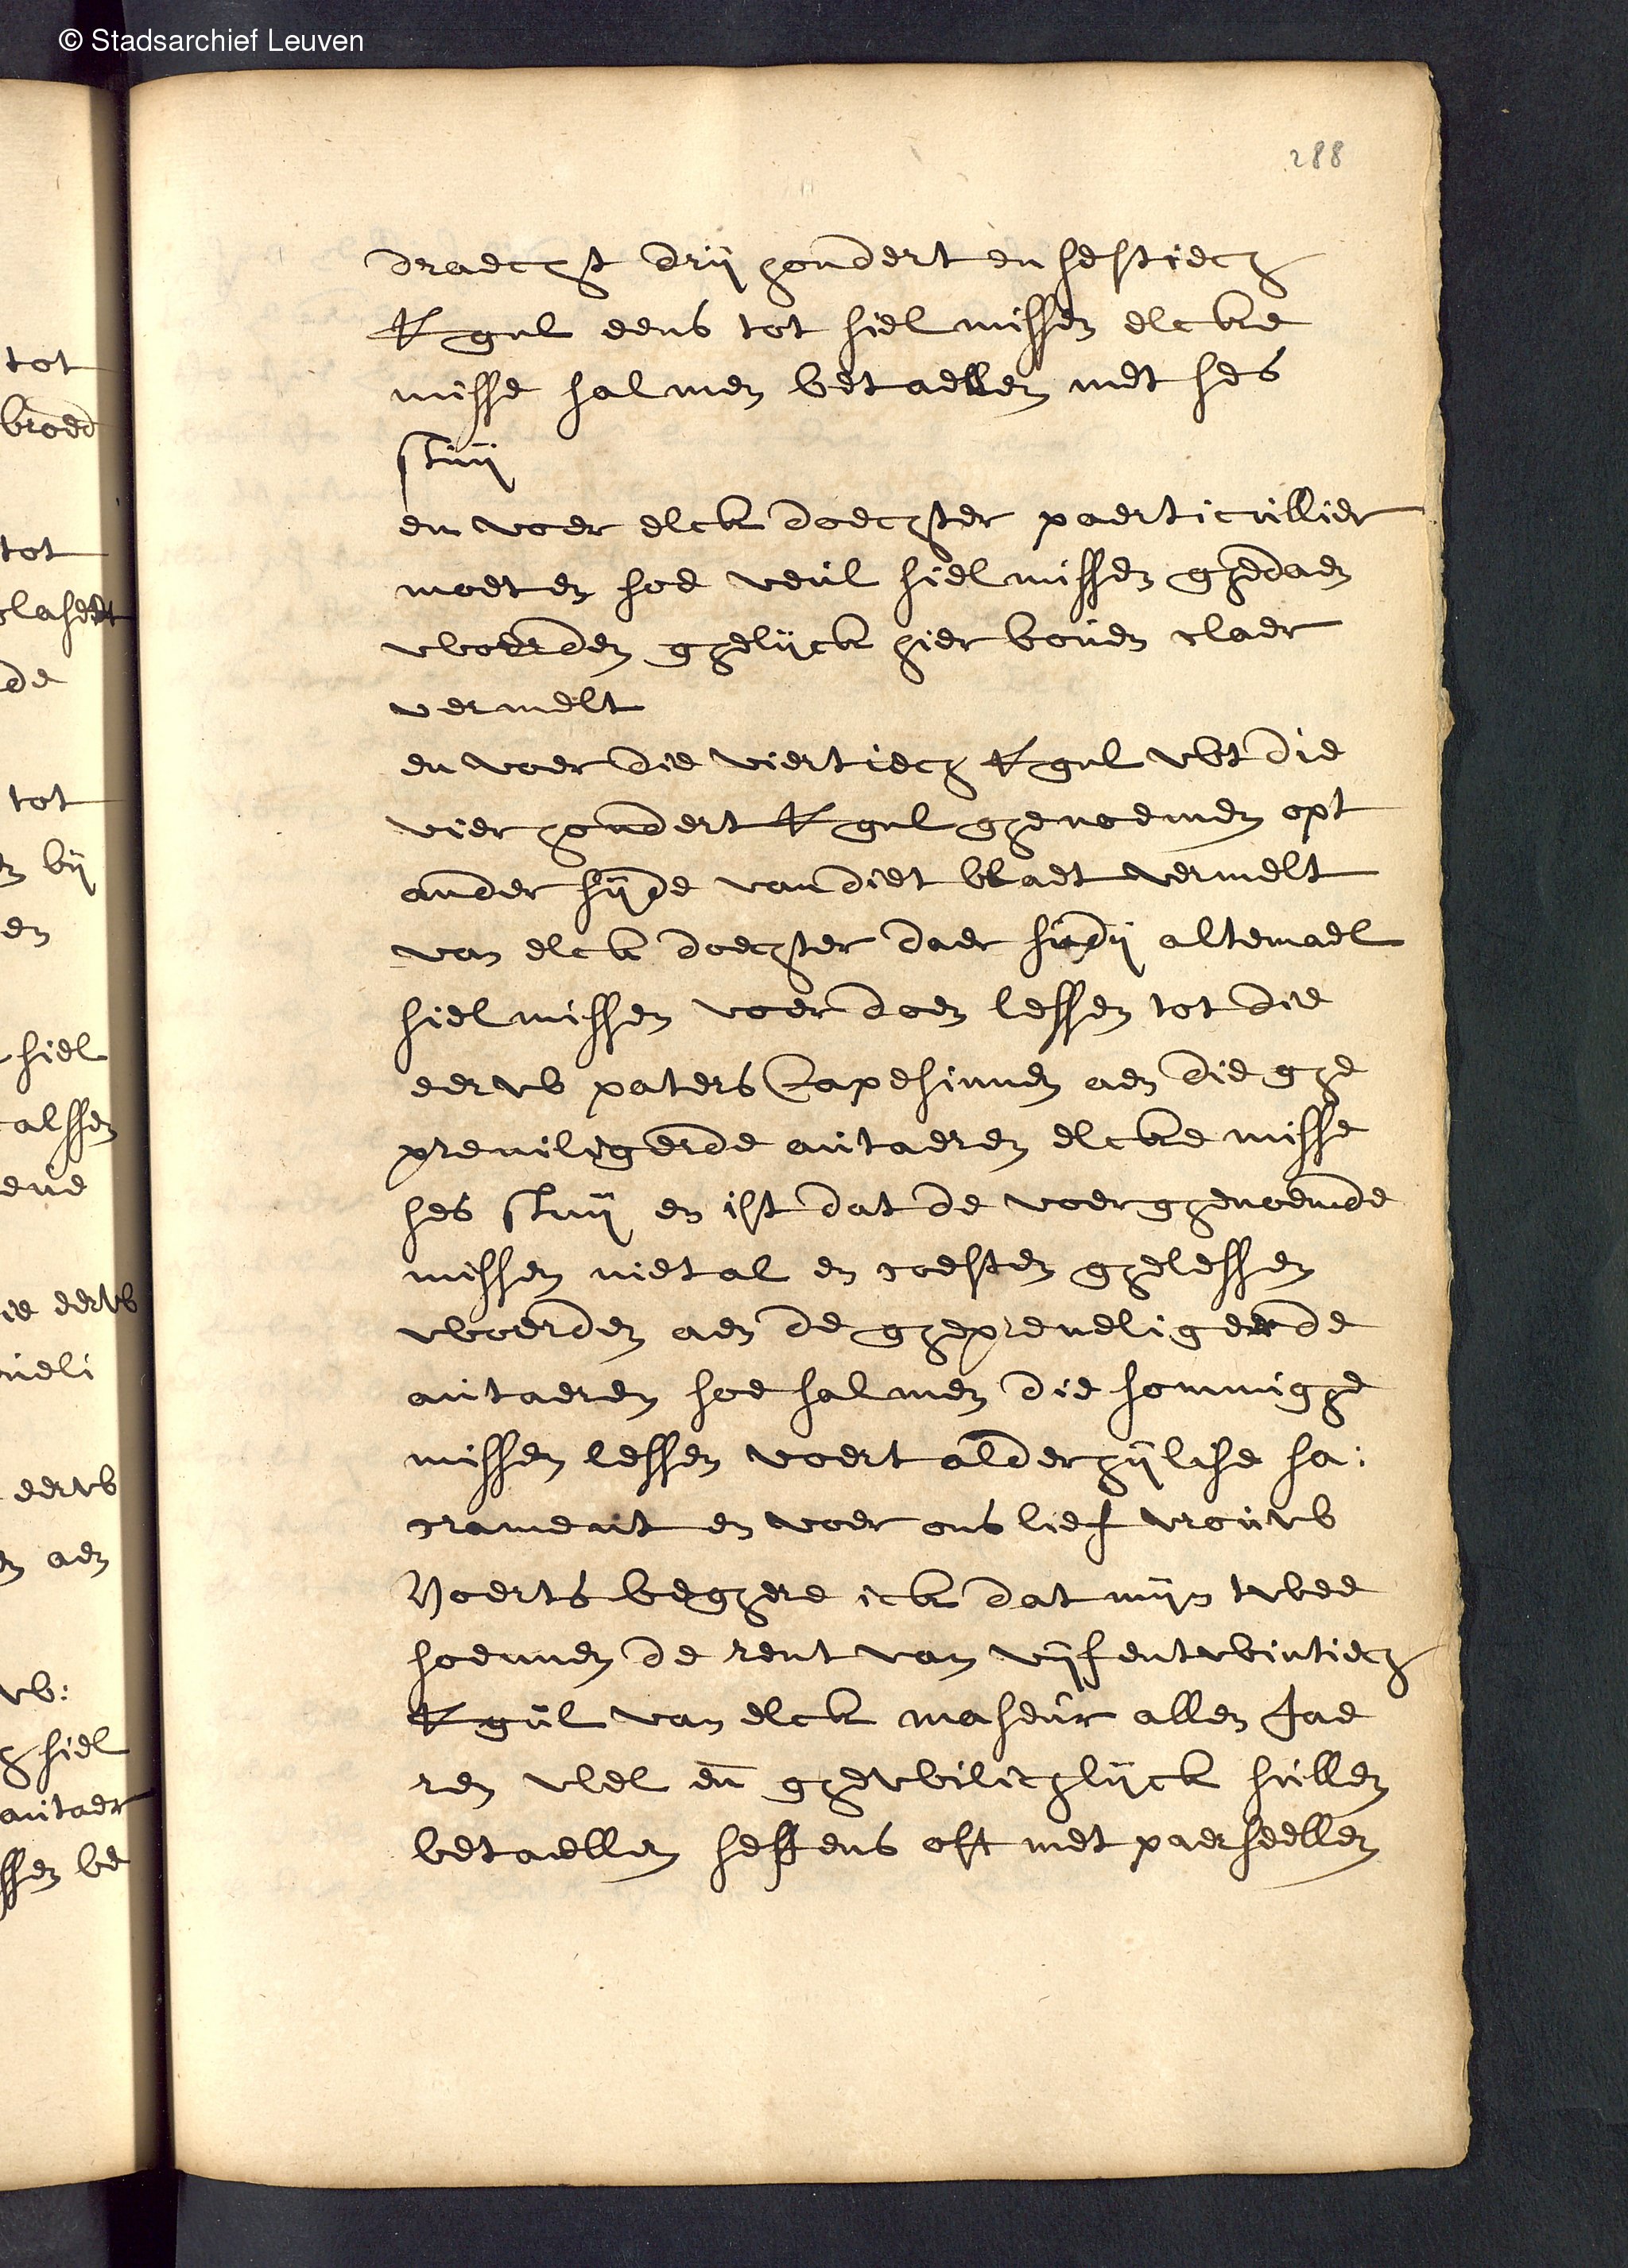 © Stadsarchief Leuven
288
draecht drij hondert en sestiech
K gul eens tot sielmissen elcke
misse salmen betaellen met ses
stuij
en voer elck doechter paerticullier
moeten soe veul sielmissen ghedaen
woerden ghelijck hier boven claer
vermelt
en voer die viertiech K gul wt die
vier hondert K gul ghenoemen opt
ander sijde van diet blaet vermelt
van elck doechter daer altemael
sielmissen voer doen lessen tot die
eerw paters Capesinnen aen die ghe
previligerde autaeren elcke misse
ses stuij en ist dat de voerghenoemde
missen niet al en coesten ghelessen
woerden aen de ghepreveligeerde
autaeren soe salmen die sommighe
missen lessen voert alderhijlichse sa:
crament en voer ons lief vrouw
Voerts beghere ick dat mijn twee
soennen de rent van vijfentwintiech
K gul van elck maseur allen Jae
ren wel en ghewbilichlijck sullen
betaellen seffens oft met paerseellen
tot
broed
tot
de
tot
bij
en
siel
eerw
eerw
aen
siel
autaer
be